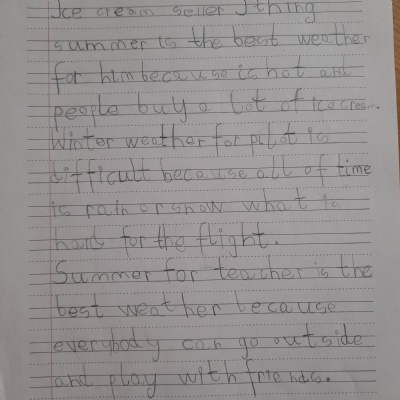 Ice cream seller I thing
summer is the best weather
for him because is hot and
people buy a lot of ice cream.
Winter weather for pilot is
difficult because all of time
is rain or snow what is
hard for the flight.
Summer for teacher is the
best weather because
everybody can go outside
and play with friends.